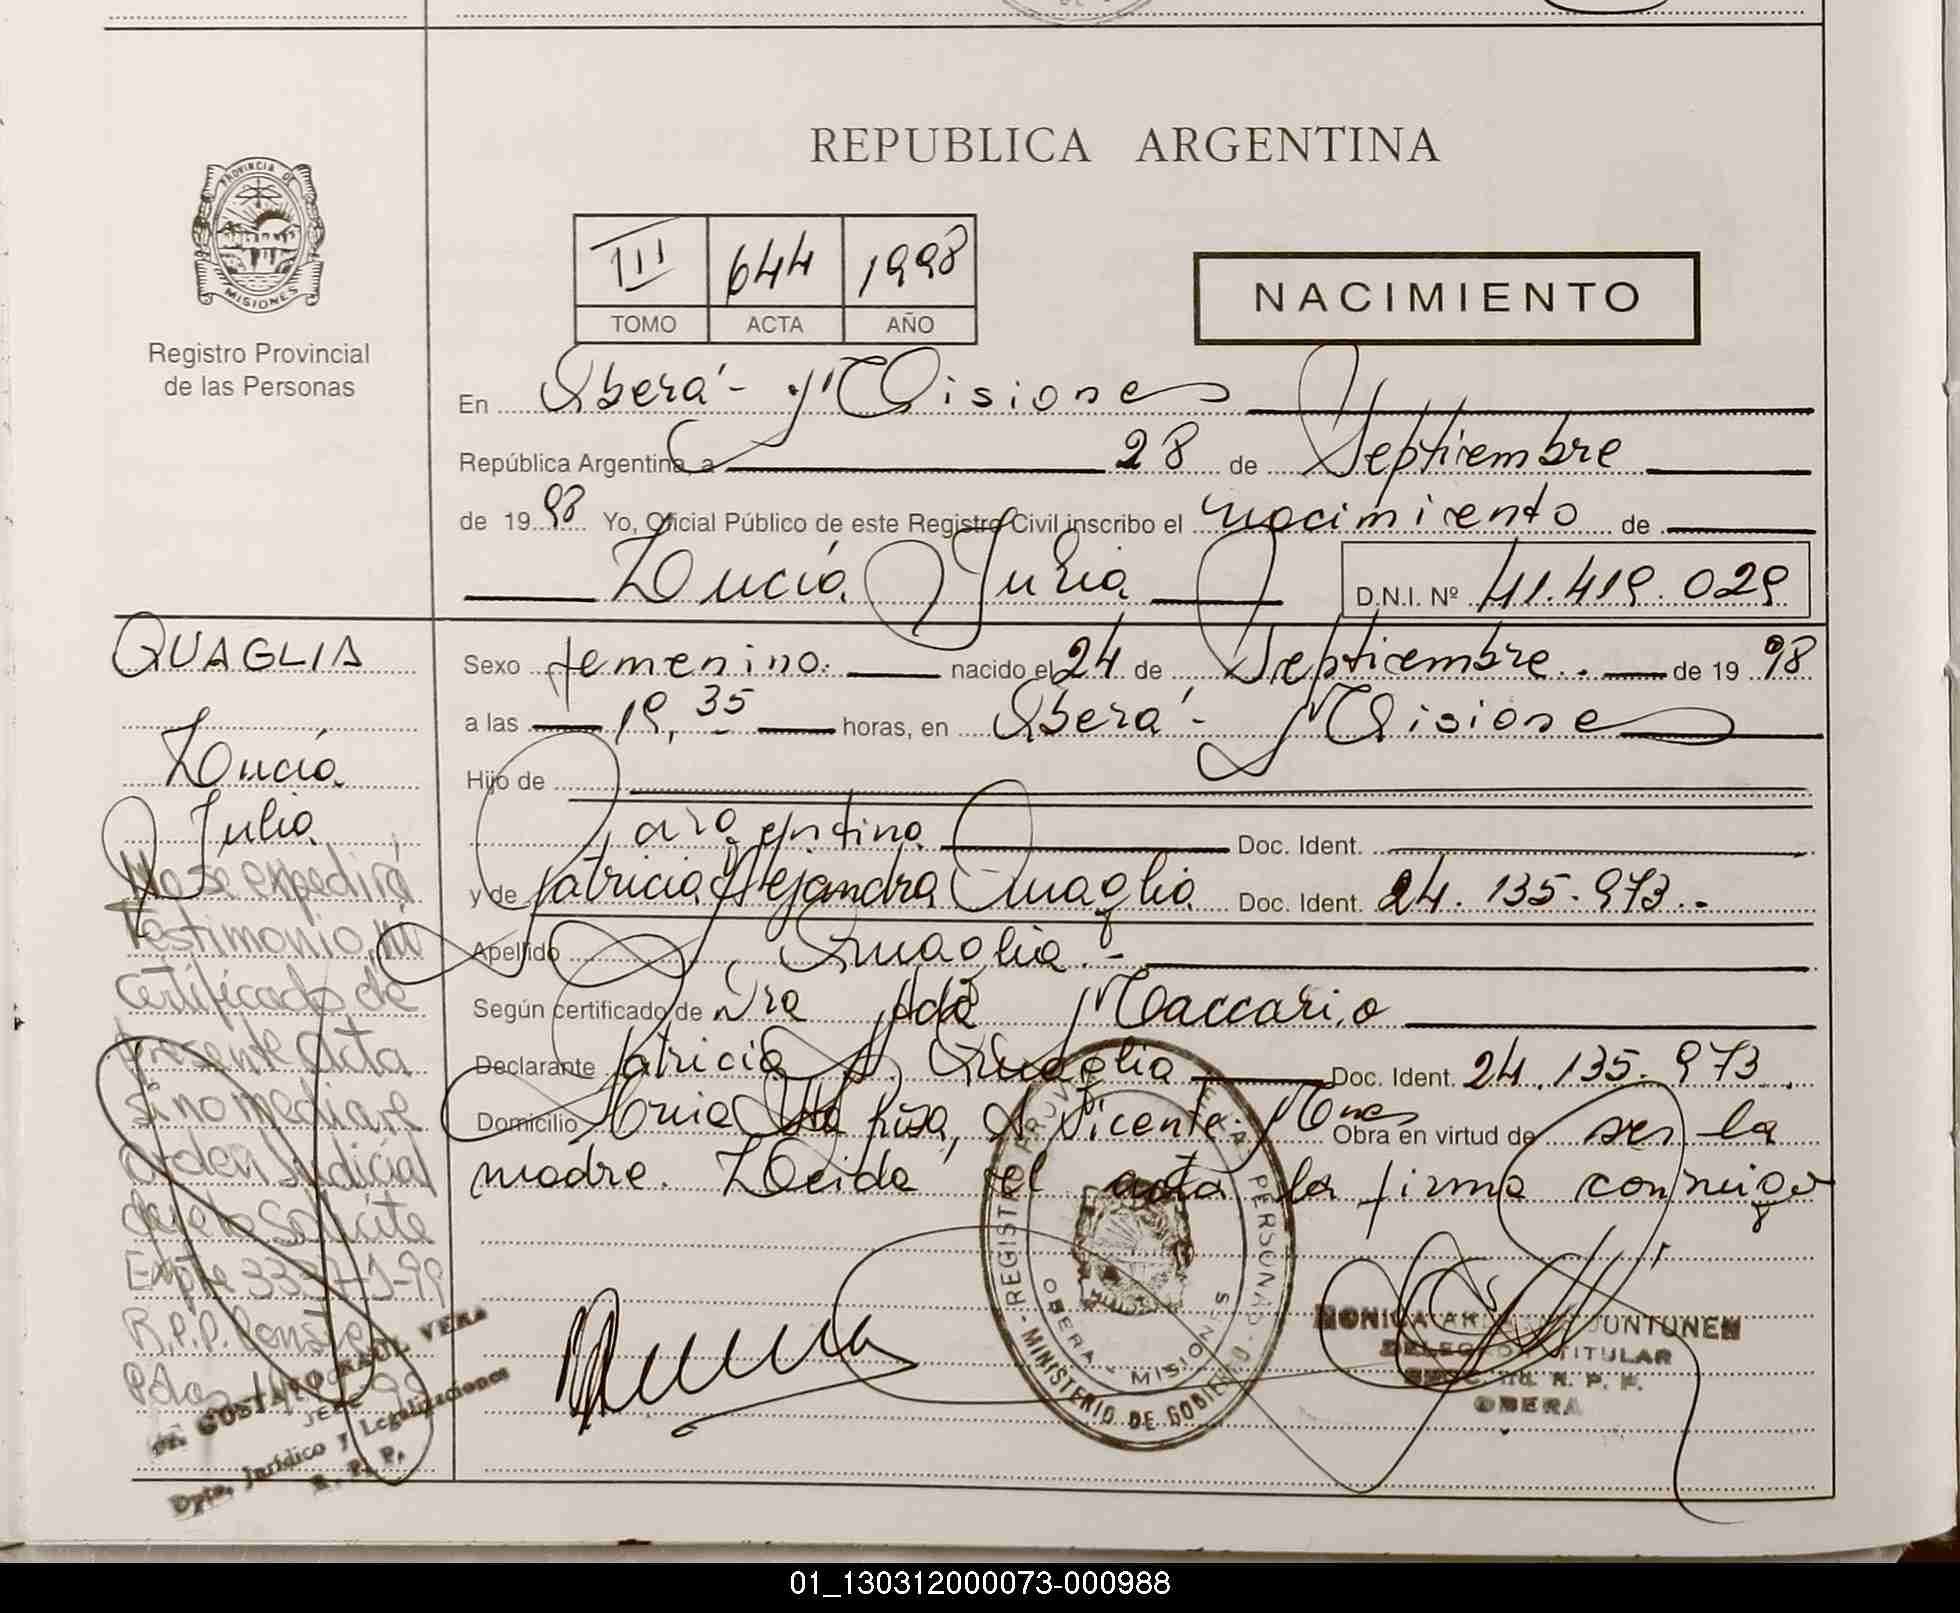 REPUBLICA ARGENTINA
PROVINCIA DE
MISIONES
Registro Provincial
de las Personas
III 644 1998
TOMO ACTA AÑO
NACIMIENTO
En Oberá - Misiones
República Argentina, a 28 de Septiembre
de 1998 Yo, Oficial Público de este Registro Civil inscribo el nacimiento de
Lucía Julia D.N.I. Nº 41.419.029
QUAGLIA
Lucía
Julia
No se expedirá
Testimonio, ni
certificado de
presente Acta
si no mediare
orden Judicial
que lo solicite
Expte 3337-J-99
R.P.P. Conste
Pdas
Dr. GUSTAVO RAUL VERA
JEFE
Dpto. Jurídico y Legalizaciones
R. P. P.
Sexo femenino. nacido el 24 de Septiembre.. de 1998
a las 19,35 horas, en Oberá - Misiones
Hijo de
argentina Doc. Ident.
y de Patricia Alejandra Quaglia Doc. Ident. 24.135.973.-
Apellido Quaglia.-
Según certificado de Dra Ada Maccario
Declarante Patricia A. Quaglia Doc. Ident. 24.135.973.
Domicilio Rosa, S. Vicente. Mnes Obra en virtud de ser la
madre. Leida el acta la firma conmigo
REGISTRO PROVINCIAL DE LAS PERSONAS
OBERA - MISIONES
MINISTERIO DE GOBIERNO
MONICA JUNTUNEN
DELEGADA TITULAR
R. P. P.
OBERA
01_130312000073-000988